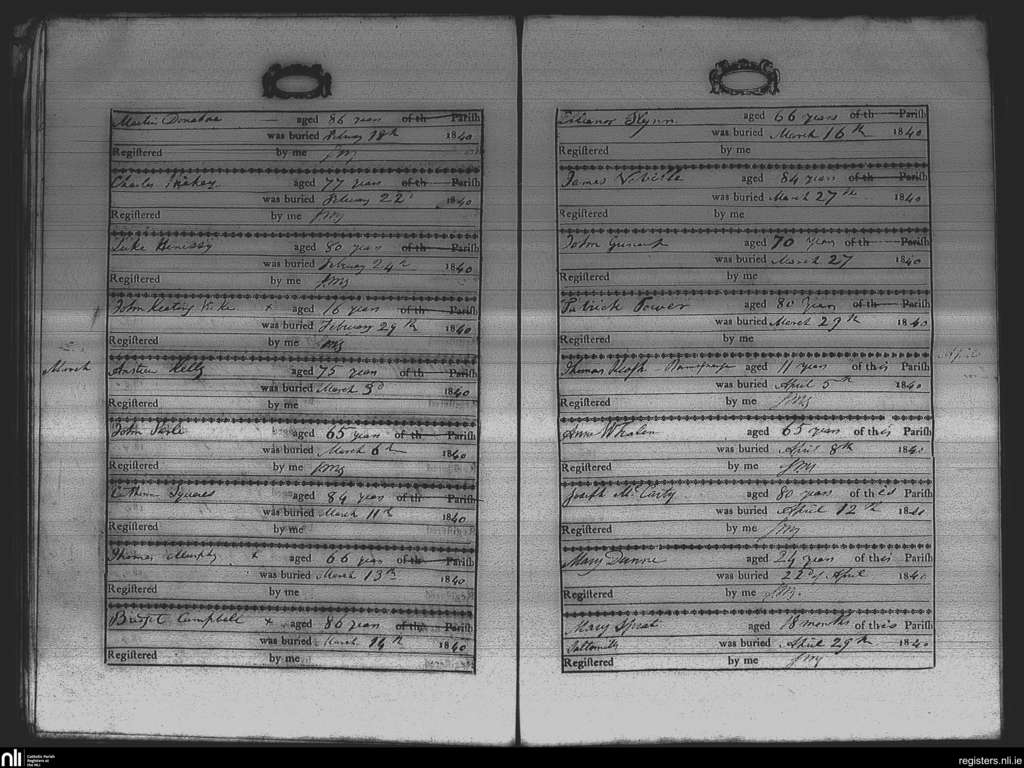 Martin Donahoe — aged 86 years of th Parish
was buried 18th 1840
Registered by me
Charles Hickey aged 77 years of th Parish
was buried 22d 1840
Registered by me
Luke Henessy aged 80 years of th Parish
was buried 24th 1840
Registered by me
John Keating + aged 16 years of th Parish
was buried February 29th 1840
Registered by me
March
Kelly aged 75 years of th Parish
was buried March 3d 1840
Registered by me
John aged 65 years of th Parish
was buried March 6th 1840
Registered by me
Squares aged 84 years of th Parish
was buried March 11th 1840
Registered by me
Thomas Murphy + aged 66 years of th Parish
was buried March 13th 1840
Registered by me
Bridget Campbell + aged 86 years of th Parish
was buried March 14th 1840
Registered by me
Elleanor Flynn aged 66 years of th Parish
was buried March 16th 1840
Registered by me
James Neville aged 84 years of th Parish
was buried March 27th 1840
Registered by me
John aged 70 years of th Parish
was buried March 27 1840
Registered by me
Patrick Power aged 80 years of th Parish
was buried March 29th 1840
Registered by me
April
Thomas Keogh aged 11 years of this Parish
was buried April 5th 1840
Registered by me
Anne Whalen aged 65 years of this Parish
was buried April 8th 1840
Registered by me
Joseph McCarty aged 80 years of this Parish
was buried April 12th 1840
Registered by me
Mary Dunne aged 24 years of this Parish
was buried 22d of April 1840
Registered by me
Mary Sprat aged 18 months of this Parish
was buried April 29th 1840
Registered by me
nli Catholic Parish Registers at the NLI
registers.nli.ie